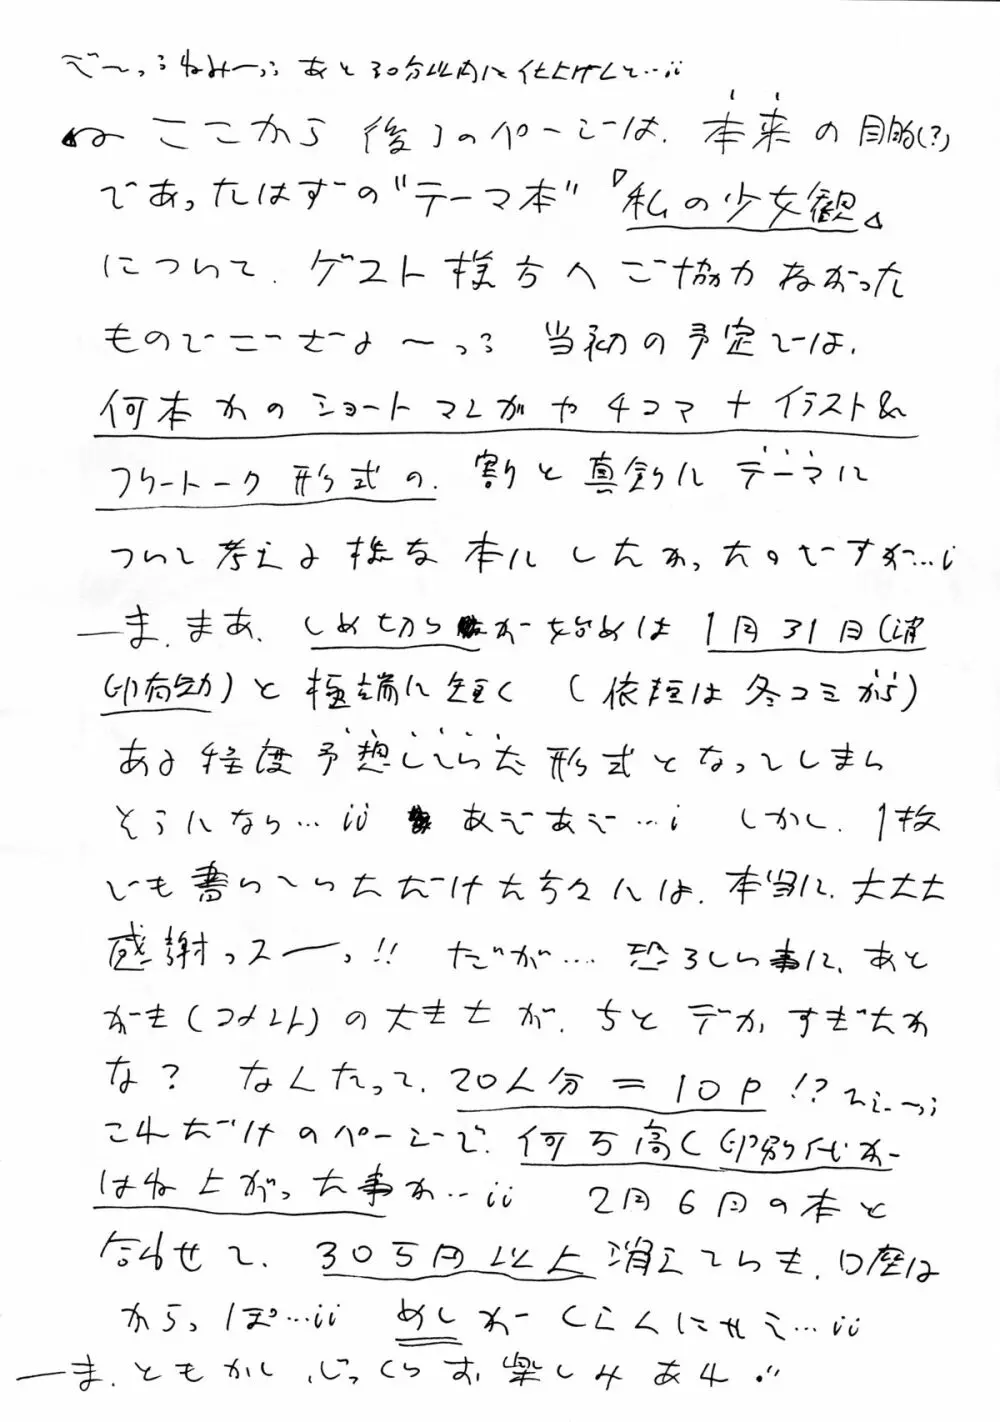 で〜っ…ねみーっ…あと30分以内に仕上げんと…ii
ここから後ろのページは、本来の目的(?)
であったはずの“テーマ本”『私の少女観』
について、ゲスト様方へご協力ねがった
ものでございますよ〜っ… 当初の予定では、
何本かのショートマンガや4コマ+イラスト&
フリートーク形式の、割と真剣にテーマに
ついて考える様な本にしたかったのですが…i
―ま、まあ、しめ切りが始めは1月31日(消
印有効)と極端に短く(依頼は冬コミから)
ある程度予想していた形式となってしまい
そうになり…ii あぞあぞ…i しかし、1枚
でも書いていただけた方々には、本当に、大大大
感謝っスーっ!! だが… 恐ろしい事に、あと
がき(コメント)の大きさが、ちとデカすぎたか
な? なんたって、20人分=10P!?
これだけのページで、何万高く印刷代が
はね上がった事か…ii 2月6日の本と
合わせて、30万円以上消えていも、口座は
からっぽ…ii めしがくえんにゃえ…ii
―ま、ともかく、じっくりお楽しみあれ